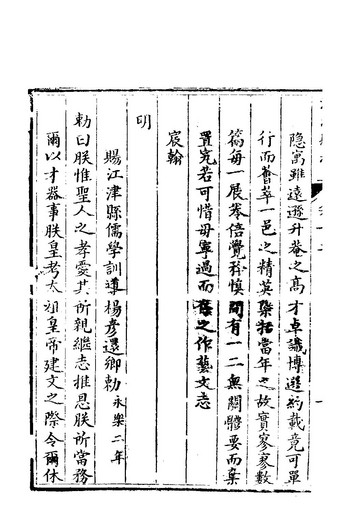 隐寓雖遠遜升菴之髙才卓識博遊約載竟可單
行而薈萃一邑之精英槩括當年之故實寥寥數
篇每一展卷倍覺矜慎間有一二無關體要而棄
置究若可惜毋寧過而舊之作藝文志
宸翰
明
賜江津縣儒學訓導楊彦還鄉勅永樂二年
勅曰朕惟聖人之孝愛其所親繼志推恩朕所當務
爾以才器事朕皇考太祖皇帝建文之際令爾休